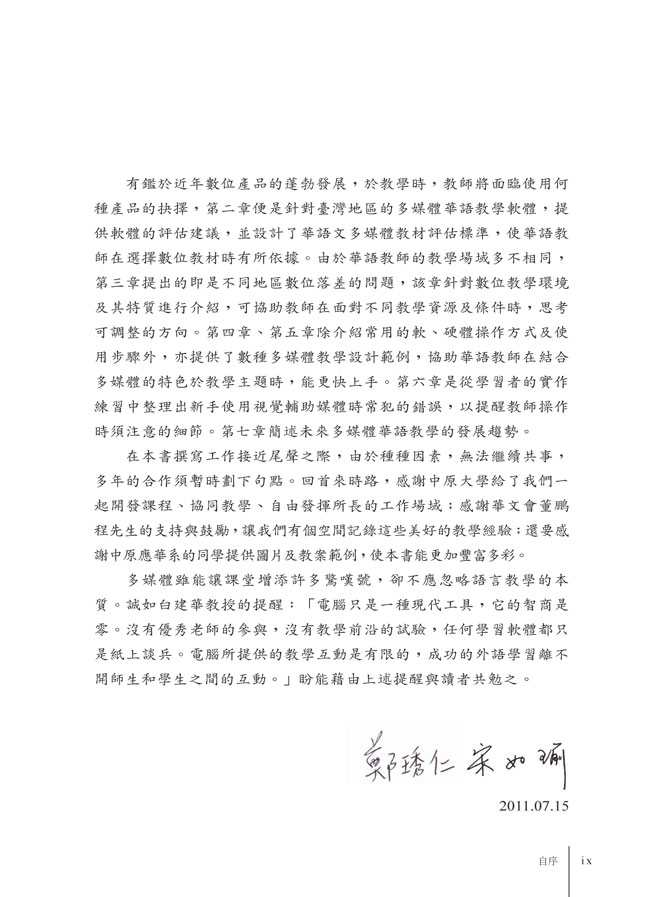 有鑑於近年數位產品的蓬勃發展，於教學時，教師將面臨使用何
種產品的抉擇，第二章便是針對臺灣地區的多媒體華語教學軟體，提
供軟體的評估建議，並設計了華語文多媒體教材評估標準，使華語教
師在選擇數位教材時有所依據。由於華語教師的教學場域多不相同，
第三章提出的即是不同地區數位落差的問題，該章針對數位教學環境
及其特質進行介紹，可協助教師在面對不同教學資源及條件時，思考
可調整的方向。第四章、第五章除介紹常用的軟、硬體操作方式及使
用步驟外，亦提供了數種多媒體教學設計範例，協助華語教師在結合
多媒體的特色於教學主題時，能更快上手。第六章是從學習者的實作
練習中整理出新手使用視覺輔助媒體時常犯的錯誤，以提醒教師操作
時須注意的細節。第七章簡述未來多媒體華語教學的發展趨勢。
在本書撰寫工作接近尾聲之際，由於種種因素，無法繼續共事，
多年的合作須暫時劃下句點。回首來時路，感謝中原大學給了我們一
起開發課程、協同教學、自由發揮所長的工作場域；感謝華文會董鵬
程先生的支持與鼓勵，讓我們有個空間記錄這些美好的教學經驗；還要感
謝中原應華系的同學提供圖片及教案範例，使本書能更加豐富多彩。
多媒體雖能讓課堂增添許多驚嘆號，卻不應忽略語言教學的本
質。誠如白建華教授的提醒：「電腦只是一種現代工具，它的智商是
零。沒有優秀老師的參與，沒有教學前沿的試驗，任何學習軟體都只
是紙上談兵。電腦所提供的教學互動是有限的，成功的外語學習離不
開師生和學生之間的互動。」盼能藉由上述提醒與讀者共勉之。
鄭琇仁 宋如瑜
2011.07.15
自序 ix